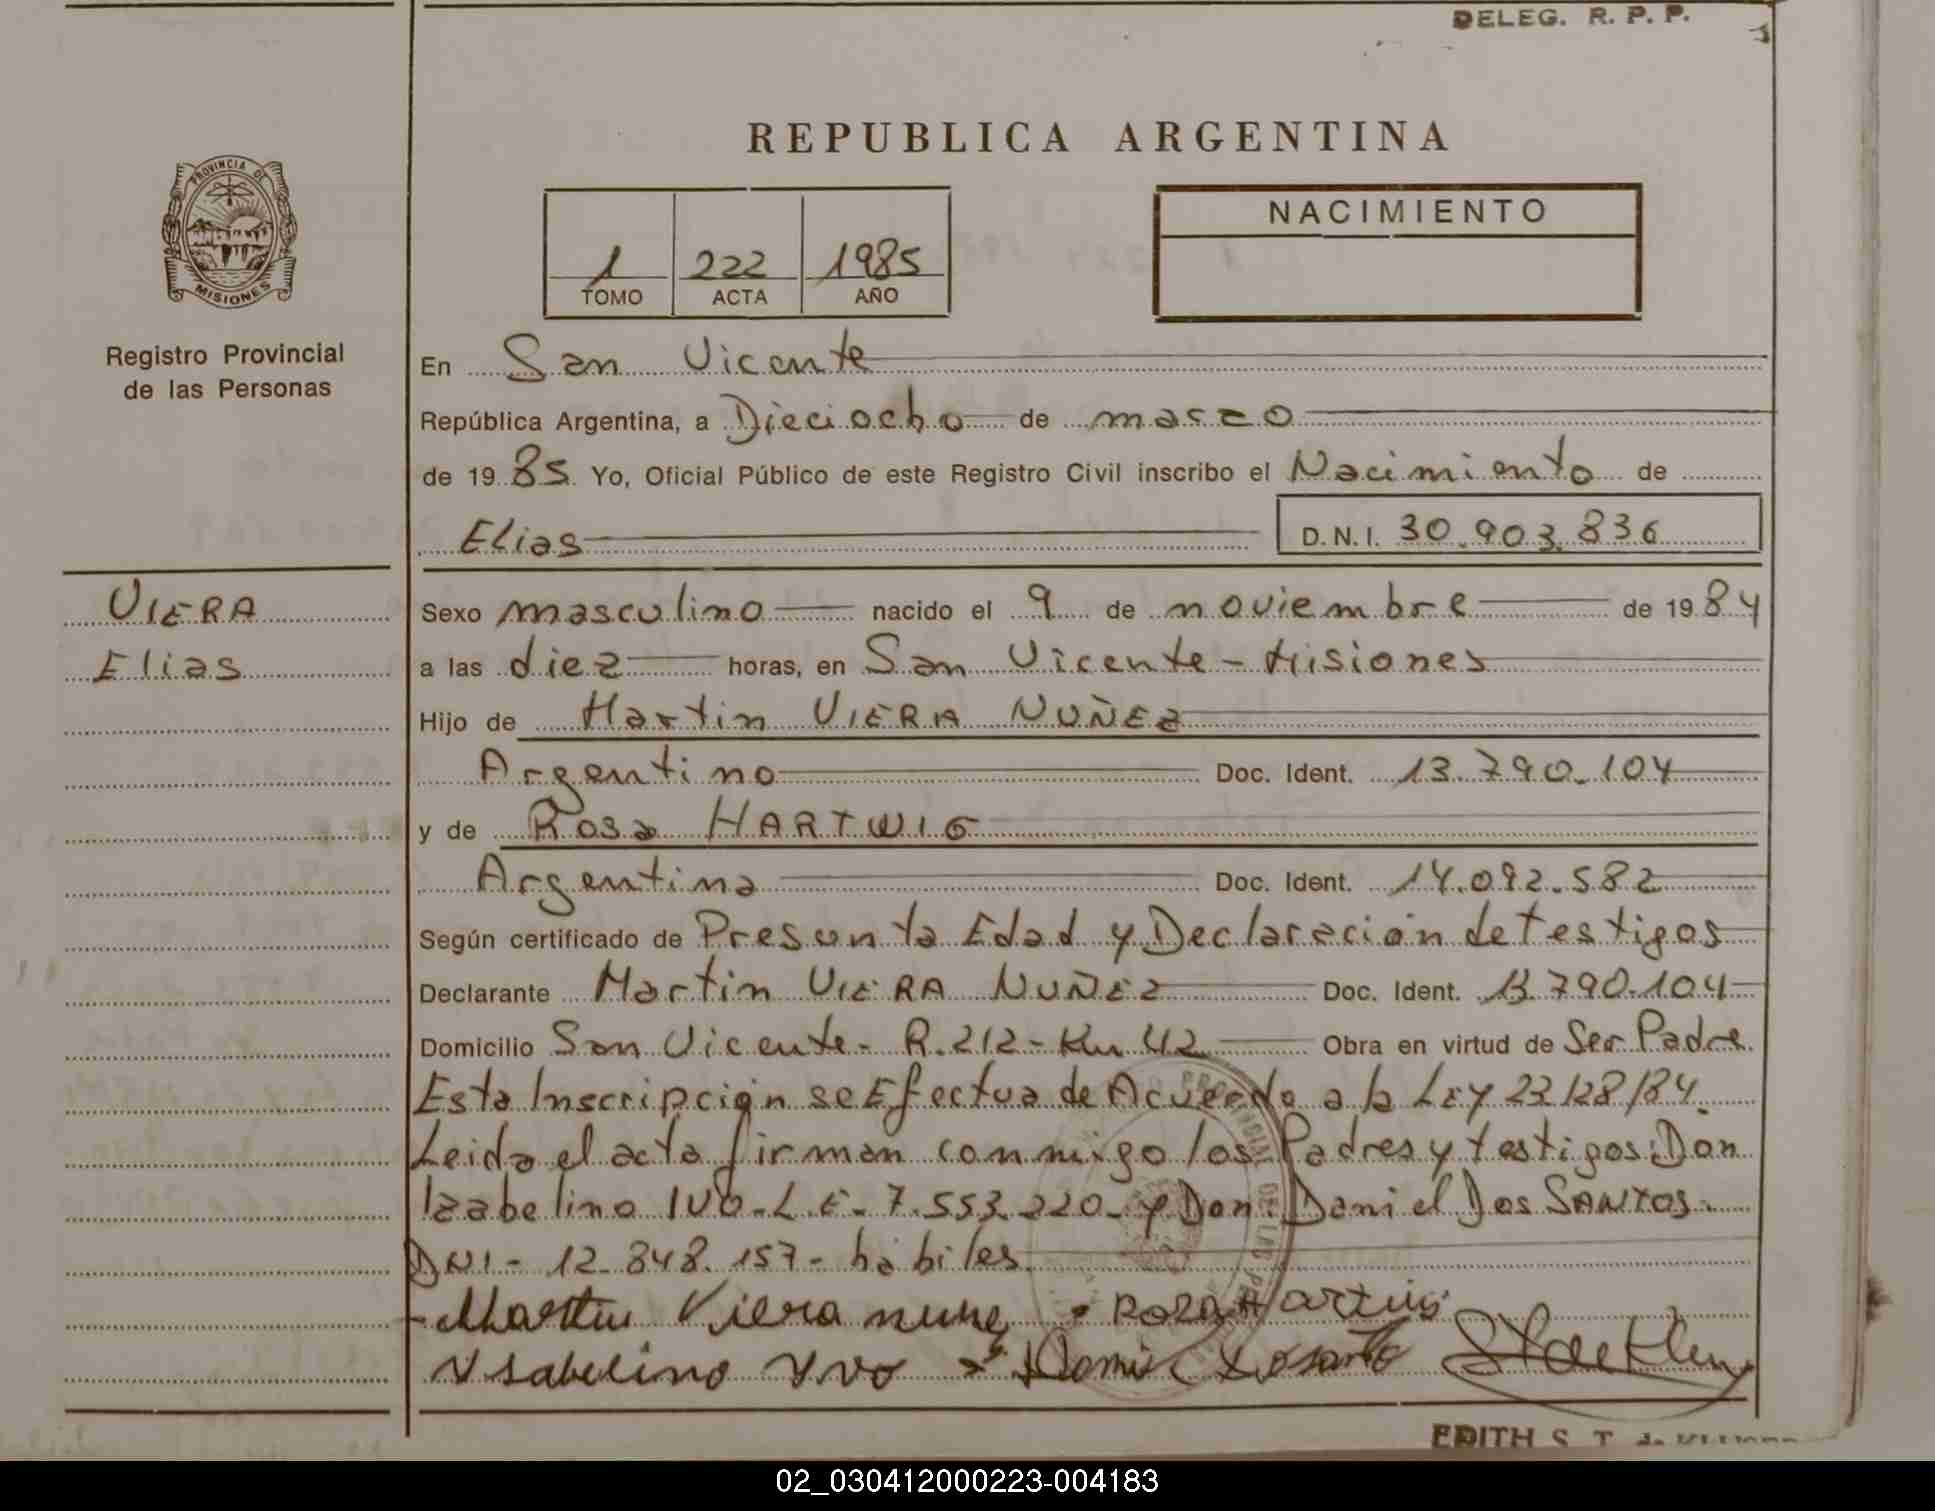 DELEG. R. P. P.
REPUBLICA ARGENTINA
PROVINCIA DE
MISIONES
Registro Provincial
de las Personas
1 222 1985
TOMO ACTA AÑO
NACIMIENTO
En San Vicente
República Argentina, a Dieciocho de marzo
de 19 85 Yo, Oficial Público de este Registro Civil inscribo el Nacimiento de
Elias D.N.I. 30.903.836
VIERA
Elias
Sexo masculino nacido el 9 de noviembre de 19 84
a las diez horas, en San Vicente - Misiones
Hijo de Martin VIERA NUÑEZ
Argentino Doc. Ident. 13.790.104
y de Rosa HARTWIG
Argentina Doc. Ident. 14.092.582
Según certificado de Presunta Edad y Declaración de Testigos
Declarante Martin VIERA NUÑEZ Doc. Ident. 13.790.104
Domicilio San Vicente - R. 212 - Km 42 Obra en virtud de Ser Padre
Esta Inscripción se Efectua de Acuerdo a la LEY 23128/84.
Leida el acta firman conmigo los Padres y testigos: Don
Izabelino IVO - L.E - 7.553.220 - y Don: Daniel Dos SANTOS.
DNI - 12.848.157 - hábiles
Martin Viera nuñe Rosa Hartwig
Ysabelino Yvo
EDITH S. T. de
02_030412000223-004183